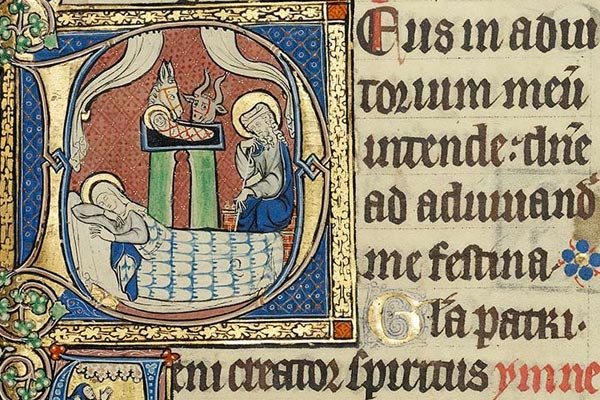 DEus in adiu
torium meū
intende: dn̄e
ad adiuuand̄
me festina.
Gl̄a patri.
Ueni creator spiritus ymne